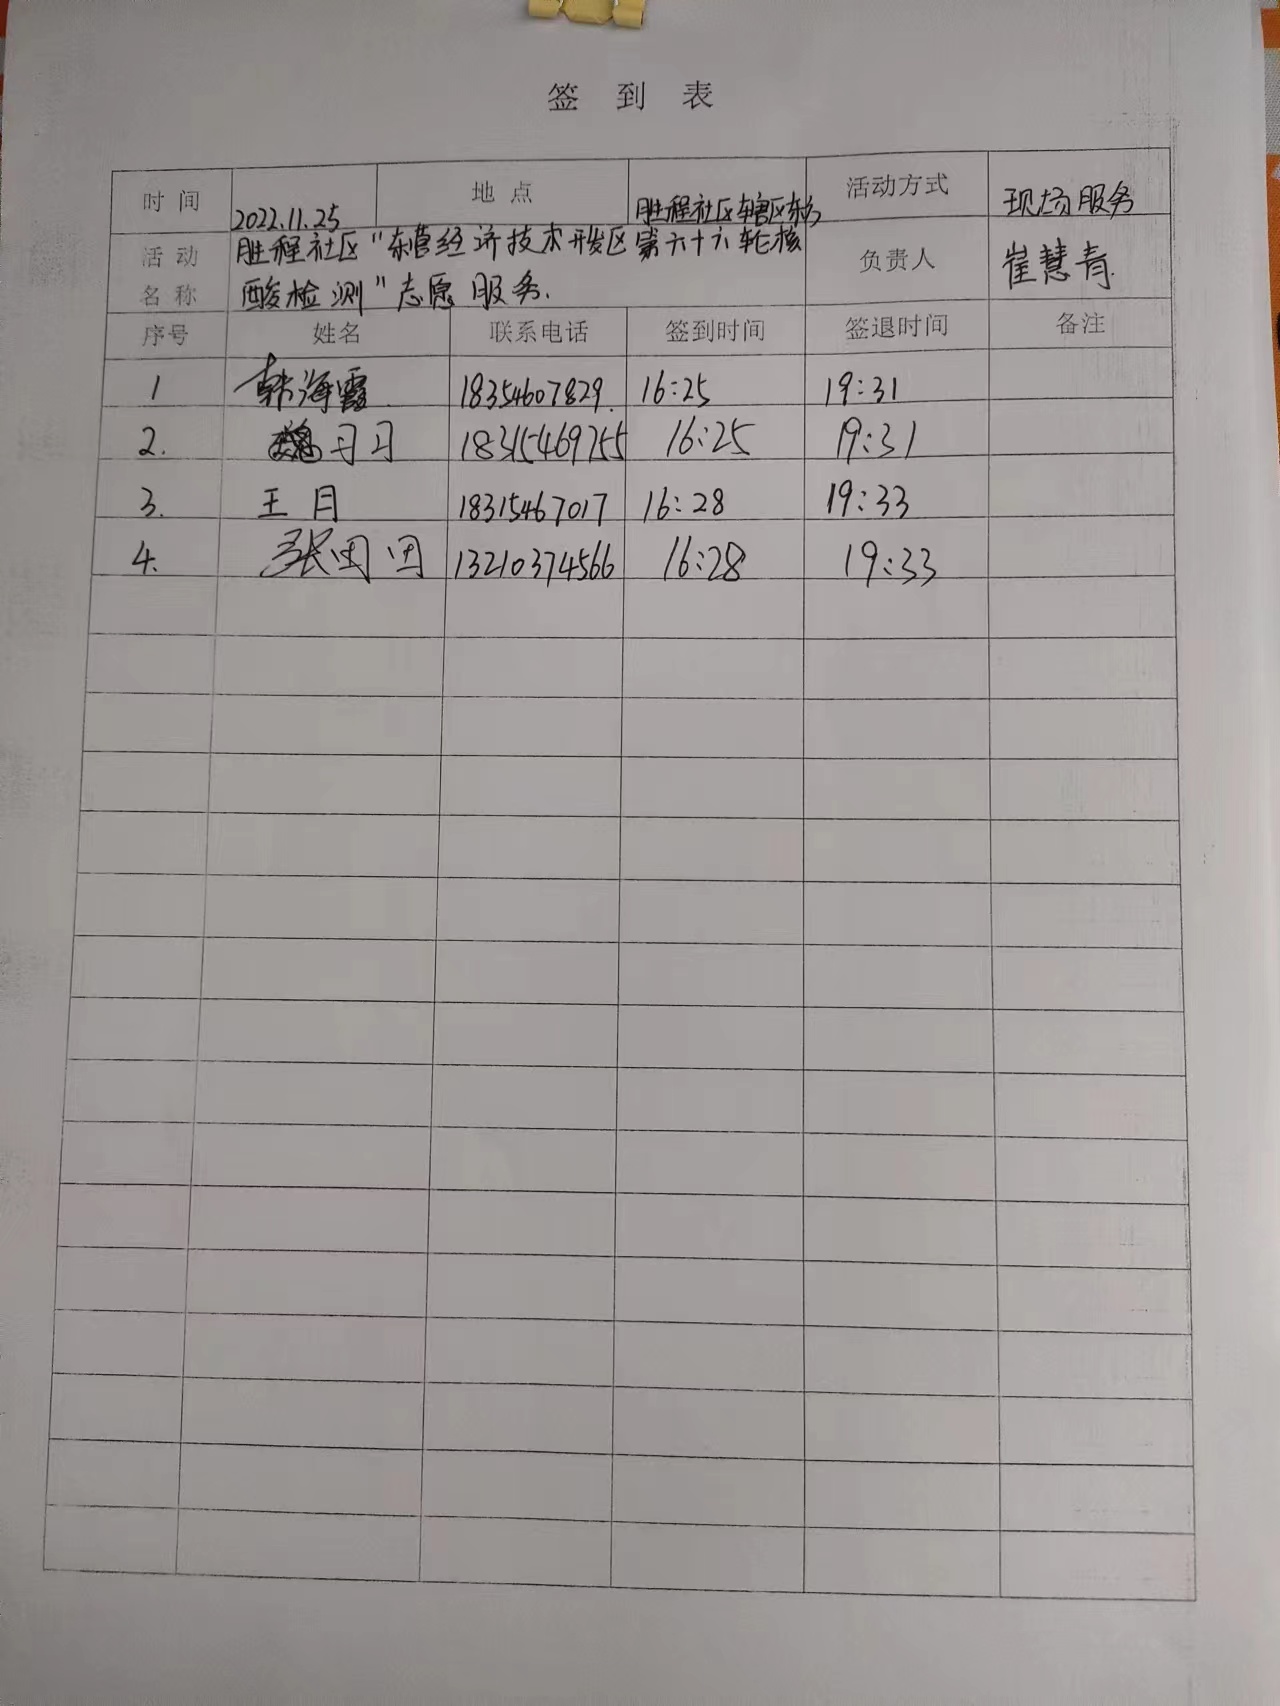 签 到 表
时 间 2022.11.25 地 点 胜程社区辖区东 活动方式 现场服务
活 动 名 称 胜程社区"东营经济技术开发区第六十六轮核 负责人 崔慧青
酸检测"志愿服务.
序号 姓名 联系电话 签到时间 签退时间 备注
1 韩海霞 18354607829. 16:25 19:31
2. 习习 18315469755 16:25 19:31
3. 王月 18315467017 16:28 19:33
4. 张团团 13210374566 16:28 19:33